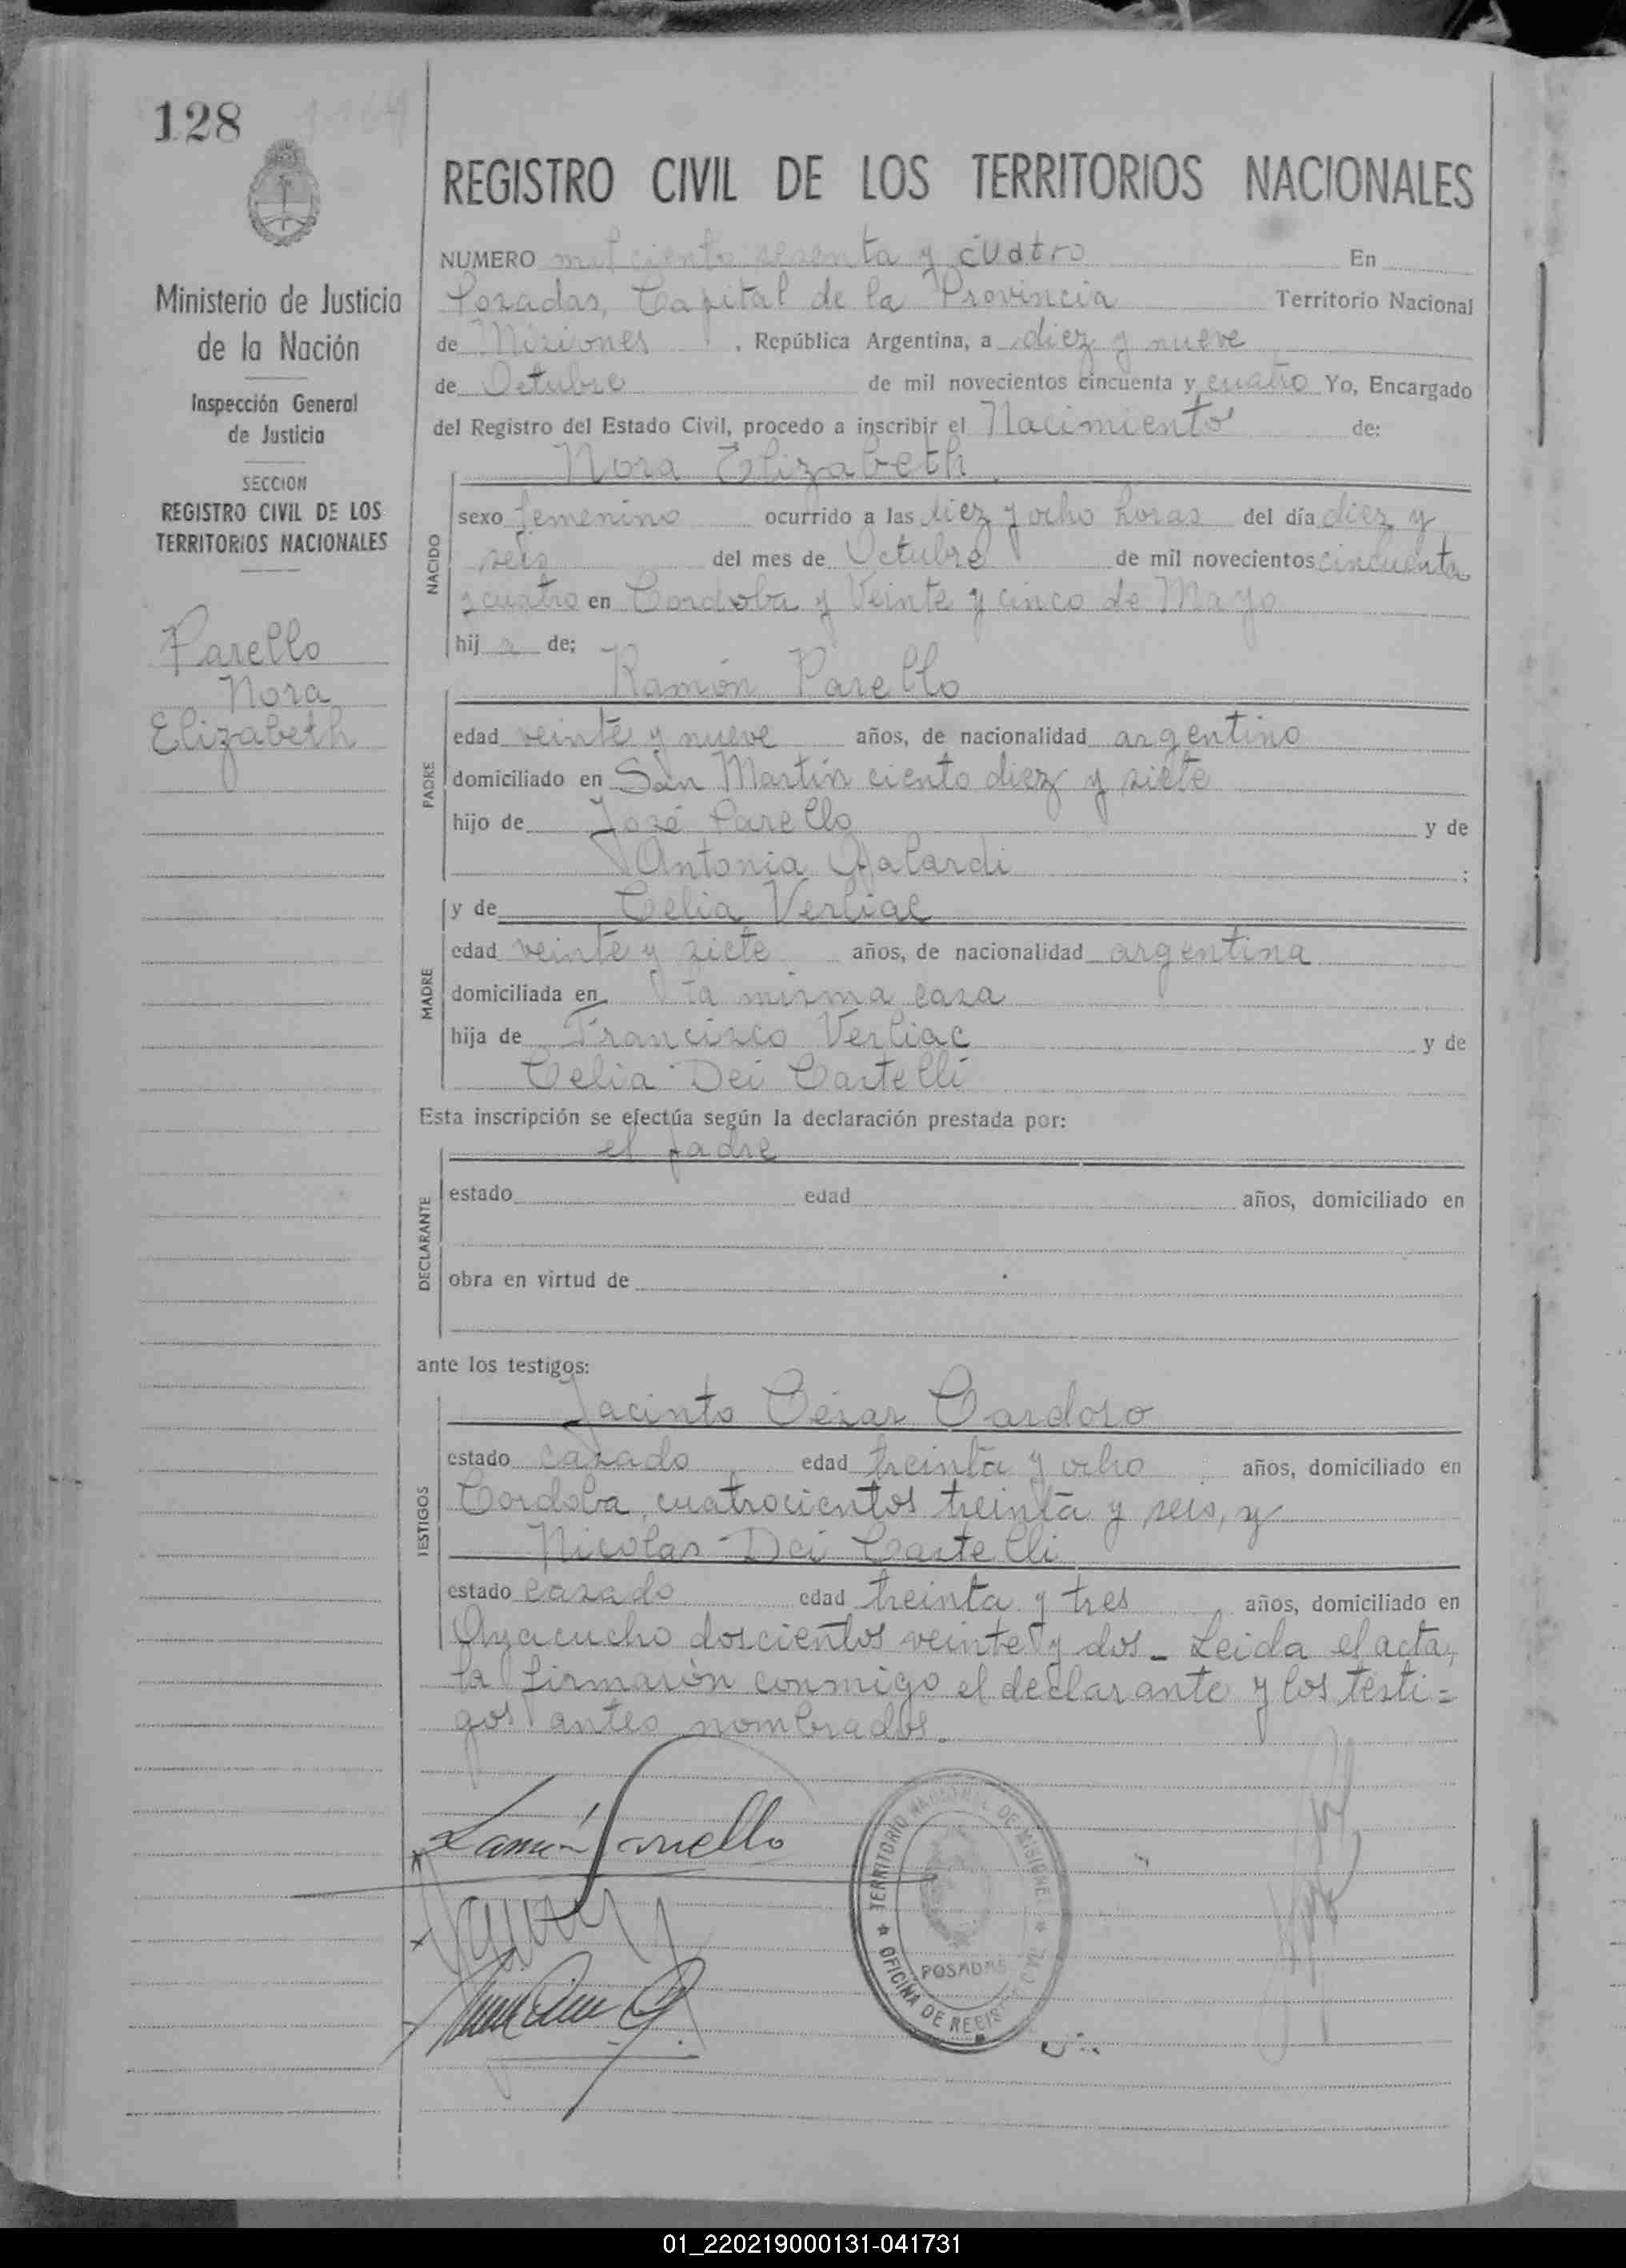 128
1164
REGISTRO CIVIL DE LOS TERRITORIOS NACIONALES
Ministerio de Justicia
de la Nación
Inspección General
de Justicia
SECCION
REGISTRO CIVIL DE LOS
TERRITORIOS NACIONALES
Parello
Nora
Elizabeth
NUMERO mil ciento sesenta y cuatro En
Posadas, Capital de la Provincia Territorio Nacional
de Misiones, República Argentina, a diez y nueve
de Octubre de mil novecientos cincuenta y cuatro Yo, Encargado
del Registro del Estado Civil, procedo a inscribir el Nacimiento de:
Nora Elizabeth
NACIDO
sexo femenino ocurrido a las diez y ocho horas del día diez y
seis del mes de Octubre de mil novecientos cincuenta
y cuatro en Cordoba y Veinte y cinco de Mayo
hij a de;
Ramón Parello
PADRE
edad veinte y nueve años, de nacionalidad argentino
domiciliado en San Martín ciento diez y siete
hijo de José Parello y de
Antonia Galardi ;
y de Celia Verliac
MADRE
edad veinte y siete años, de nacionalidad argentina
domiciliada en la misma casa
hija de Francisco Verliac y de
Celia Dei Castelli
Esta inscripción se efectúa según la declaración prestada por:
el padre
DECLARANTE
estado edad años, domiciliado en
obra en virtud de
ante los testigos:
Jacinto César Cardoso
TESTIGOS
estado casado edad treinta y ocho años, domiciliado en
Cordoba cuatrocientos treinta y seis, y
Nicolas Dei Castelli
estado casado edad treinta y tres años, domiciliado en
Ayacucho doscientos veinte y dos - Leida el acta,
la firmarón conmigo el declarante y los testi=
gos antes nombrados.
Ramón Parello
TERRITORIO NACIONAL DE MISIONES
POSADAS
OFICINA DE REGISTRO CIVIL
01_220219000131-041731